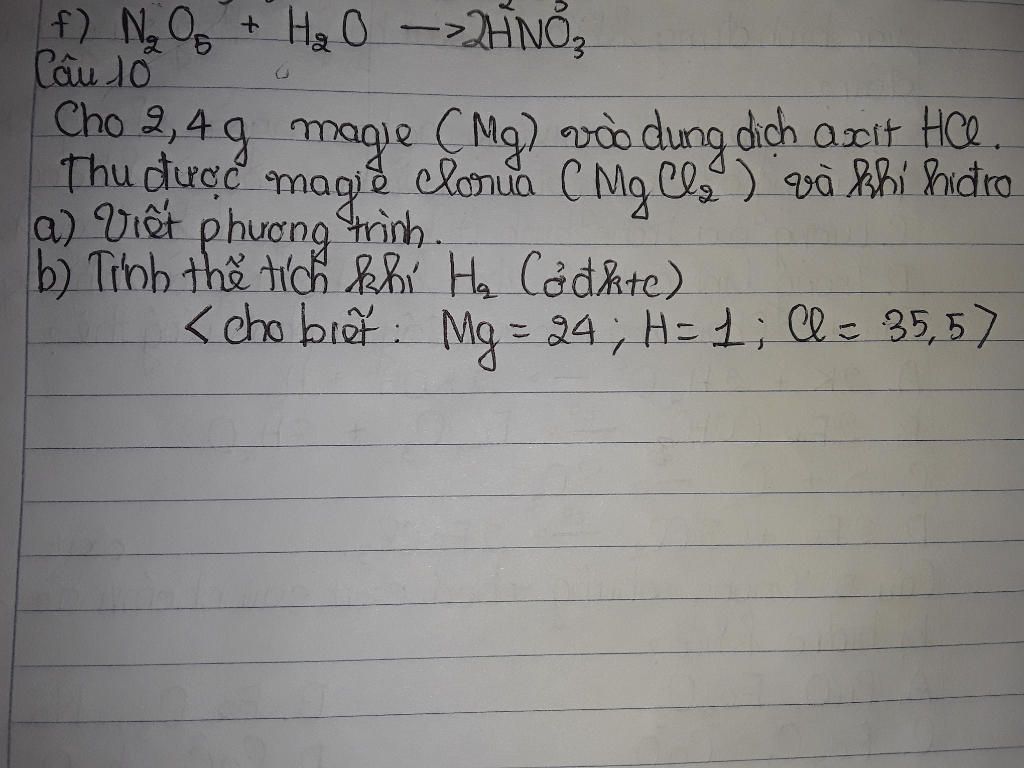 f) N₂O₅ + H₂O —>2HNO₃
Câu 10
Cho 2,4g magie (Mg) vào dung dịch axit HCl.
Thu được magiê clorua (MgCl₂) và khí hidro
a) Viết phương trình.
b) Tính thể tích khí H₂ (ở đktc)
<cho biết: Mg = 24 ; H = 1 ; Cl = 35,5>